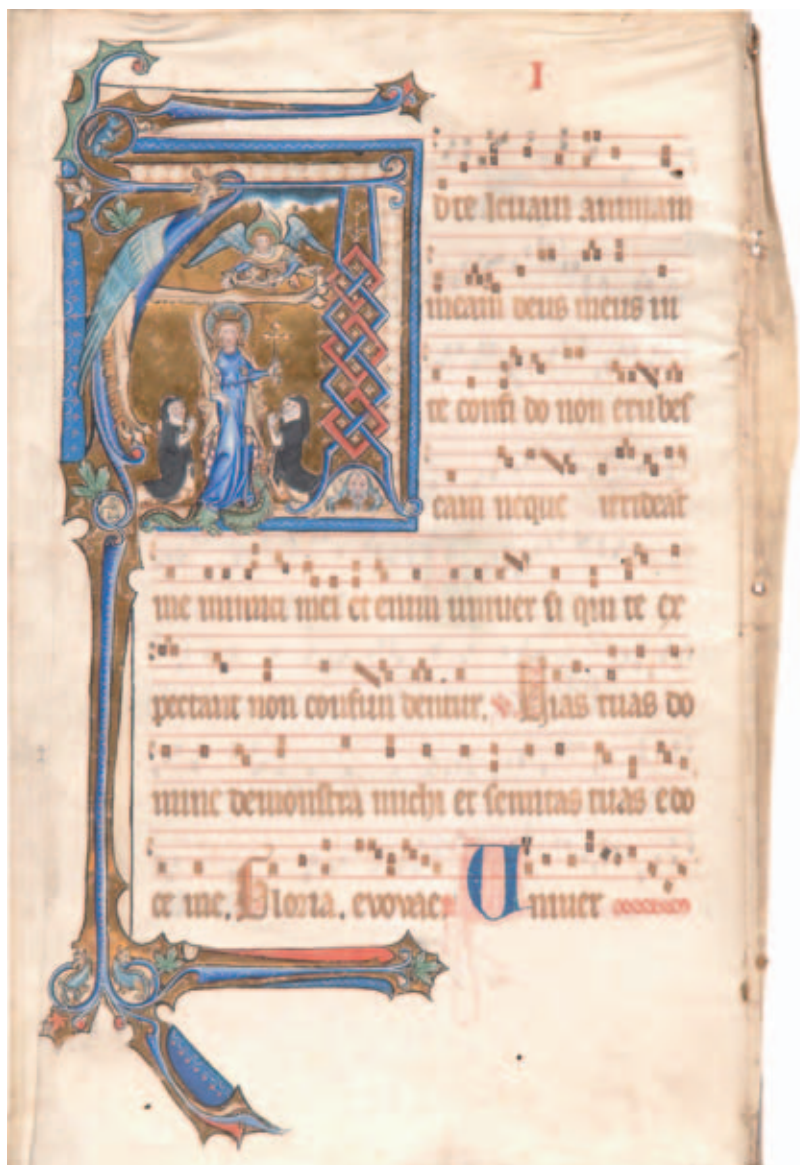 I
Ad te leuaui animam
meam deus meus in
te confi do non erubes
cam neque irrideat
me inimici mei et enim uniuer si qui te ex
pectant non confun dentur. Vias tuas do
mine demonstra michi et semitas tuas e do
ce me. Gloria. evovae. Uniuer